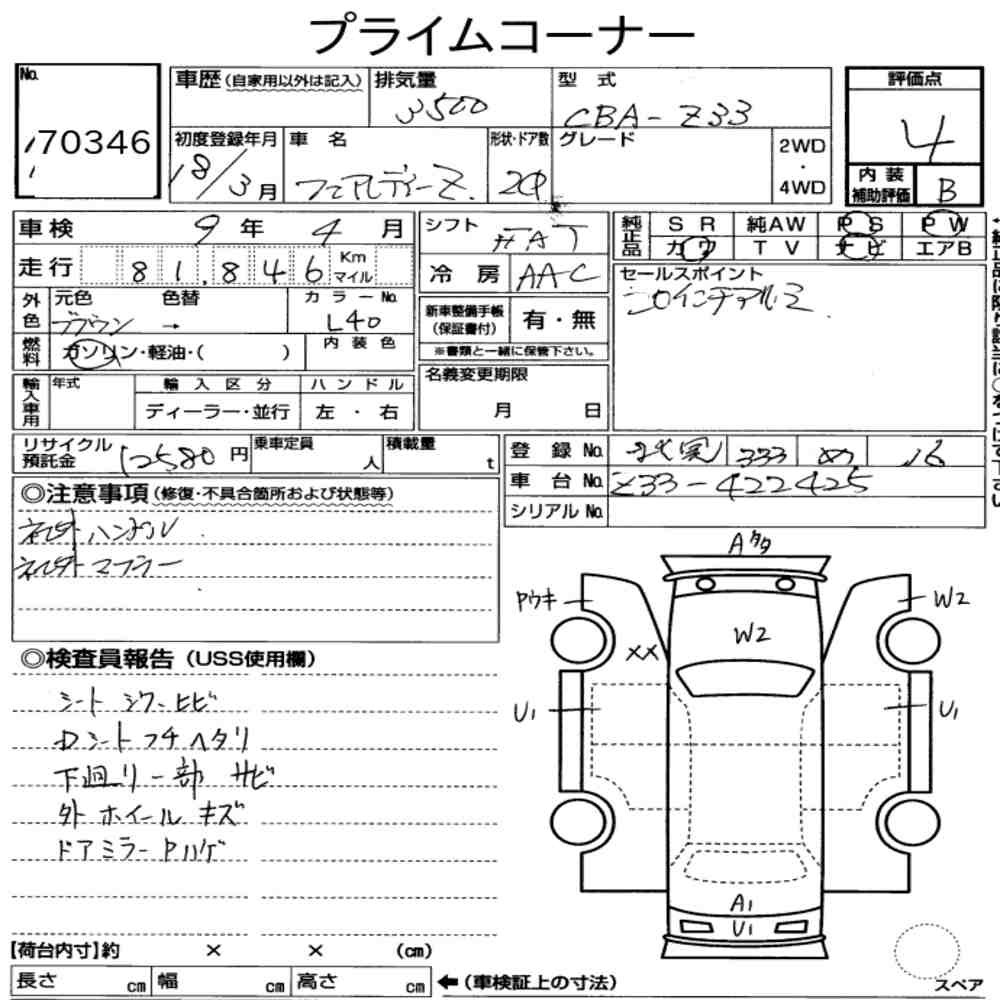 プライムコーナー
No.
70346
車歴(自家用以外は記入)
排気量
3500
型式
CBA-Z33
評価点
4
初度登録年月
18/3月
車名
フェアレディーZ
形状・ドア数
2D
グレード
2WD
・
4WD
内装
補助評価
B
車検 9年 4月
シフト
FAT
純正品
SR 純AW PS PW
カワ TV ナビ エアB
走行 81,846 Km
マイル
冷房 AAC
セールスポイント
外色
元色 色替
ブラウン →
カラーNo.
L40
新車整備手帳
(保証書付)
有・無
※書類と一緒に保管下さい。
燃料
ガソリン・軽油・( )
内装色
名義変更期限
月 日
輸入車用
年式
輸入区分
ディーラー・並行
ハンドル
左・右
リサイクル
預託金
12580円
乗車定員
人
積載量
t
登録No. 333 16
車台No. Z33-422425
シリアルNo.
◎注意事項(修復・不具合箇所および状態等)
社外ハンドル
社外マフラー
◎検査員報告(USS使用欄)
シート シワ ヒビ
Dシート フチ ヘタリ
下廻リ一部 サビ
外 ホイール キズ
ドアミラー Pハゲ
Aタタ
Pウキ
W2
W2
XX
U1
U1
A1
U1
スペア
【荷台内寸】約 × × (cm)
長さ cm 幅 cm 高さ cm
←(車検証上の寸法)